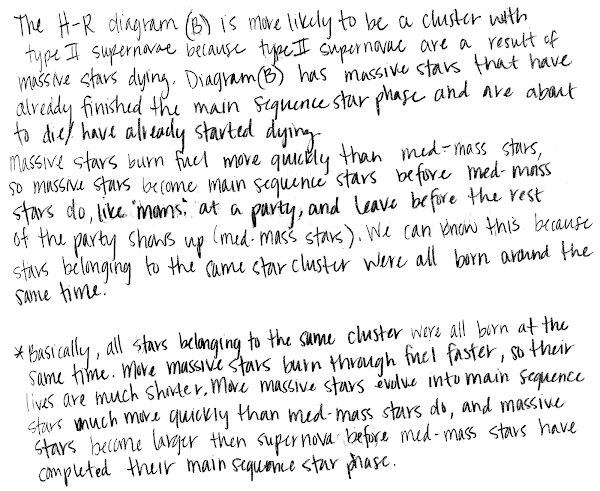 The H-R diagram (B) is more likely to be a cluster with
type II supernovae because type II supernovae are a result of
massive stars dying. Diagram (B) has massive stars that have
already finished the main sequence star phase and are about
to die/have already started dying.
Massive stars burn fuel more quickly than med-mass stars,
so massive stars become main sequence stars before med-mass
stars do, like "moms" at a party, and leave before the rest
of the party shows up (med-mass stars). We can know this because
stars belonging to the same star cluster were all born around the
same time.
*Basically, all stars belonging to the same cluster were all born at the
same time. More massive stars burn through fuel faster, so their
lives are much shorter. More massive stars evolve into main sequence
stars much more quickly than med-mass stars do, and massive
stars become larger then supernova before med-mass stars have
completed their main sequence star phase.